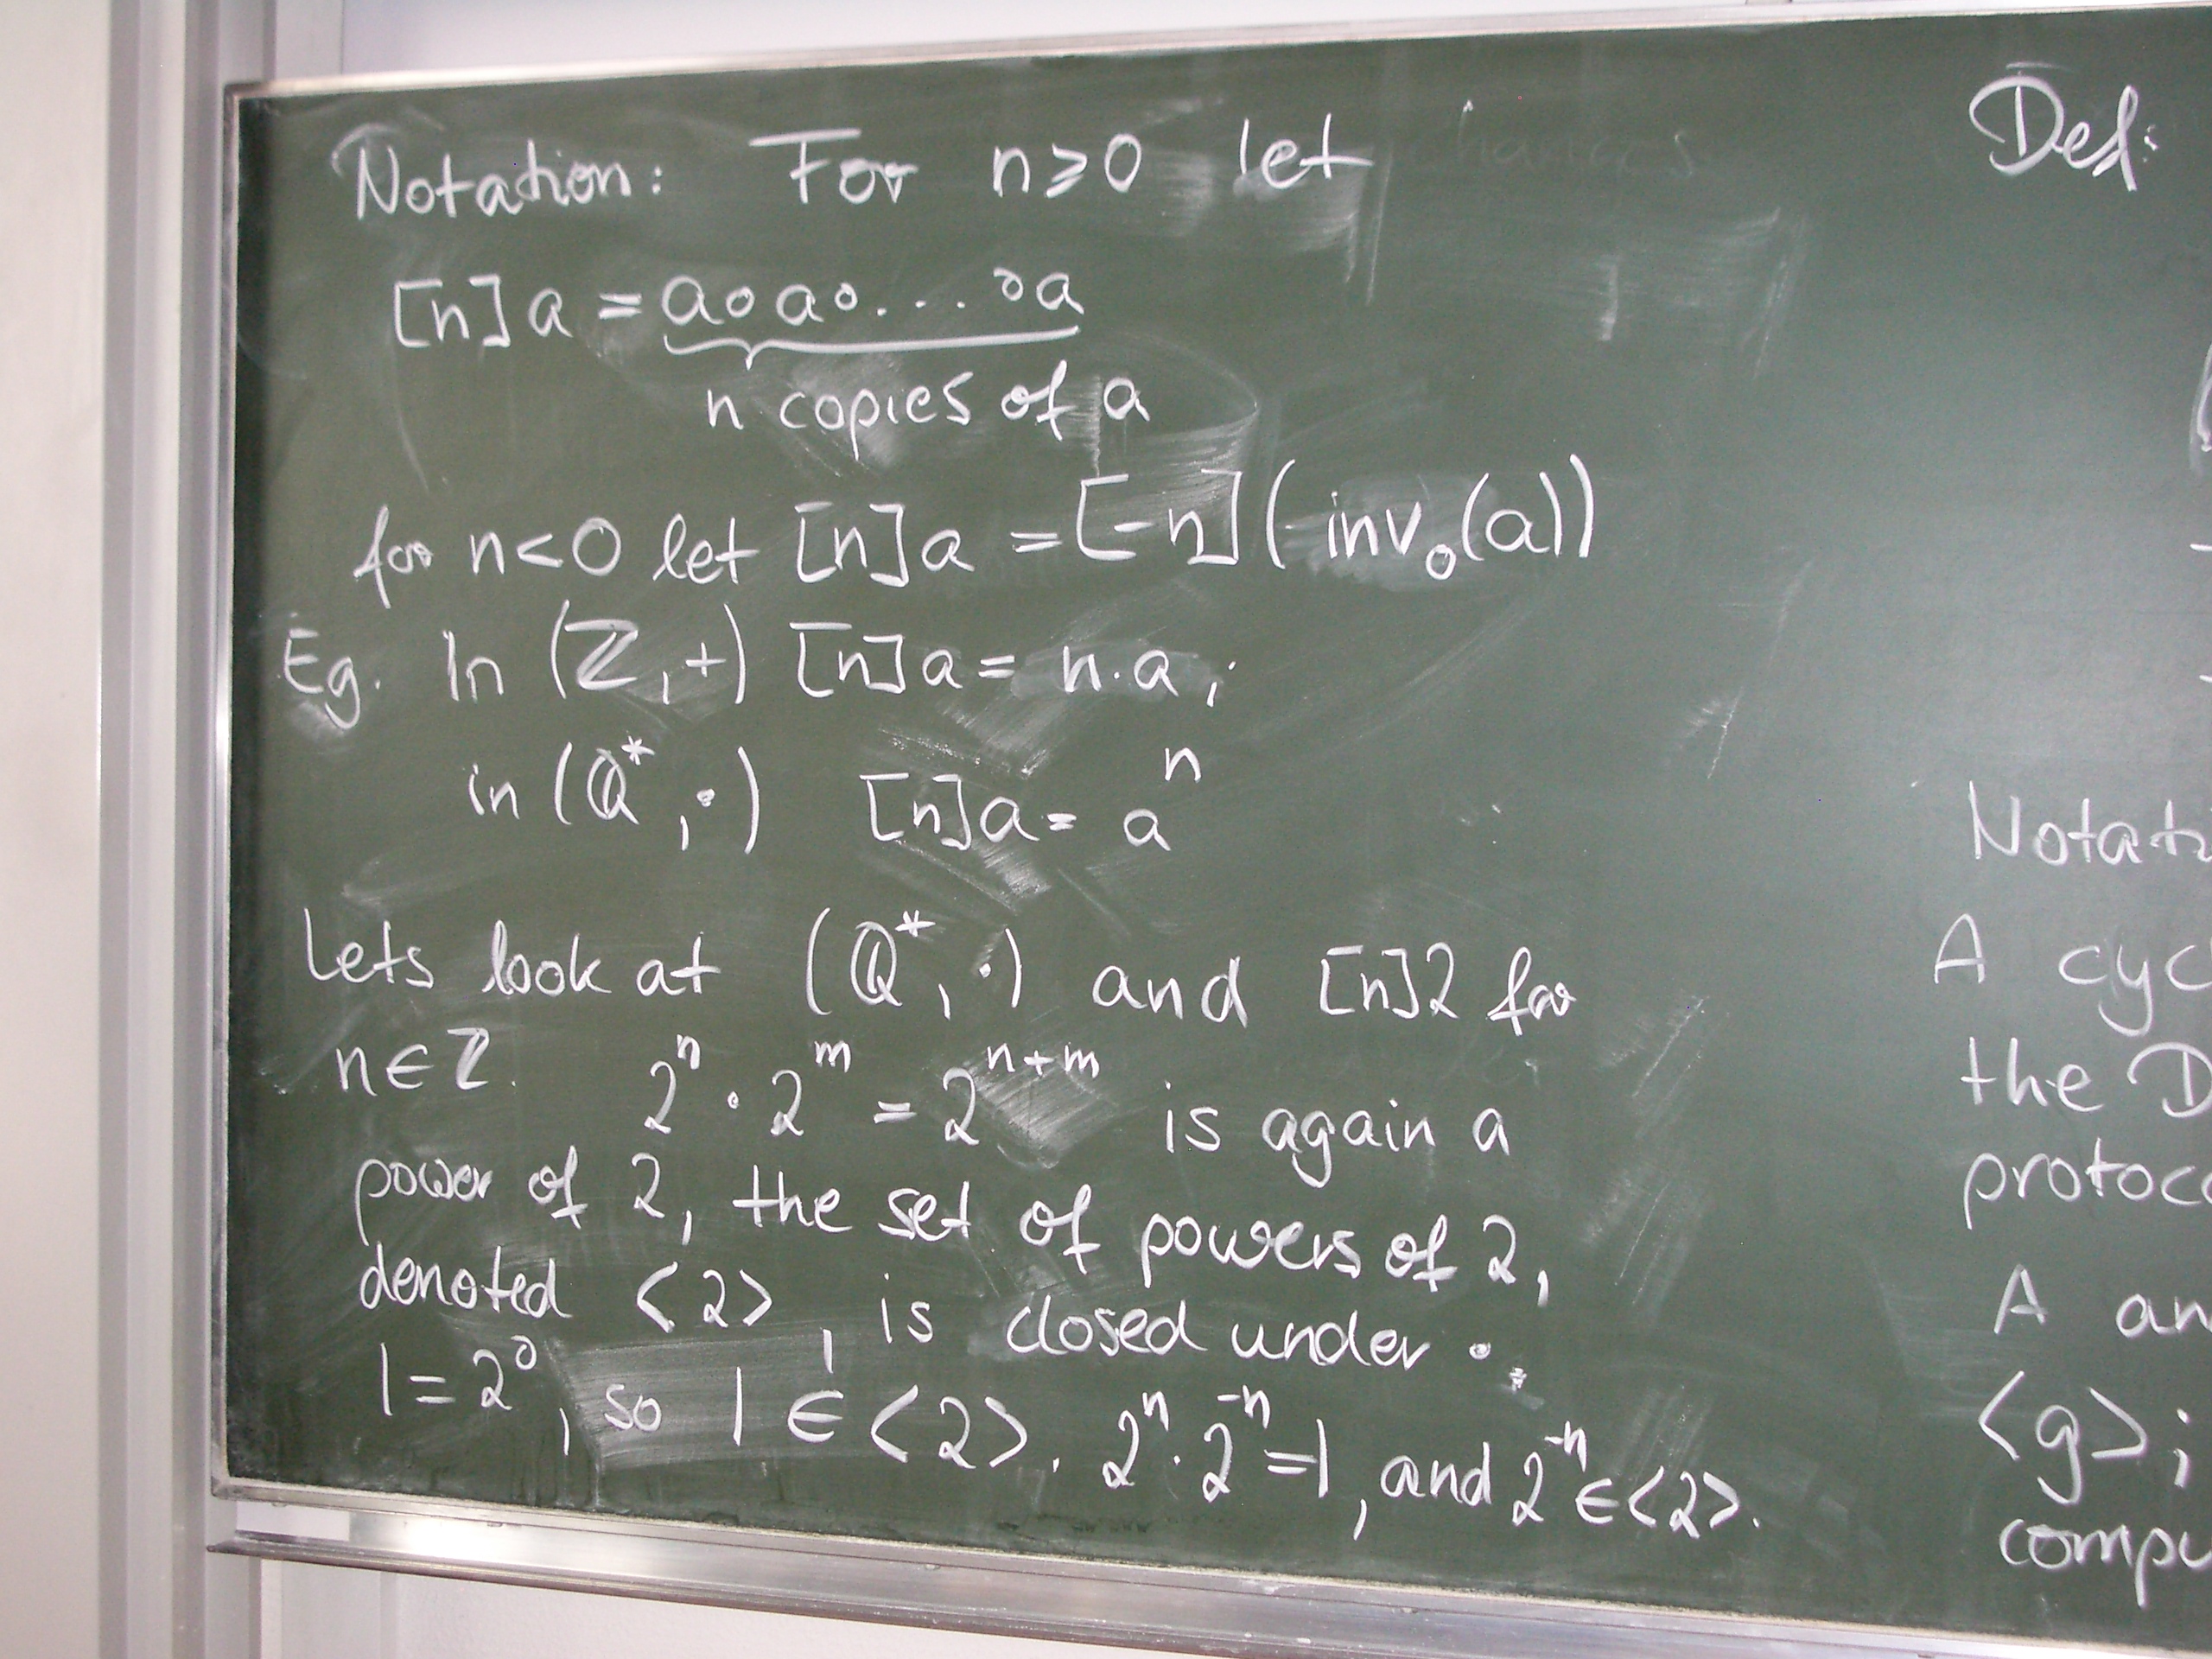 Notation: For n⩾0 let
[n]a = a∘a∘...∘a
n copies of a
for n<0 let [n]a = [-n](inv∘(a))
Eg. In (ℤ,+) [n]a = n·a;
in (ℚ*,·) [n]a = aⁿ
Lets look at (ℚ*,·) and [n]2 for
n∈ℤ. 2ⁿ·2ᵐ = 2ⁿ⁺ᵐ is again a
power of 2, the set of powers of 2,
denoted <2>, is closed under ·.
1=2⁰, so 1∈<2>. 2ⁿ·2⁻ⁿ=1, and 2⁻ⁿ∈<2>.
Def:
Notati
A cyc
the D
protoco
A an
<g>;
compu